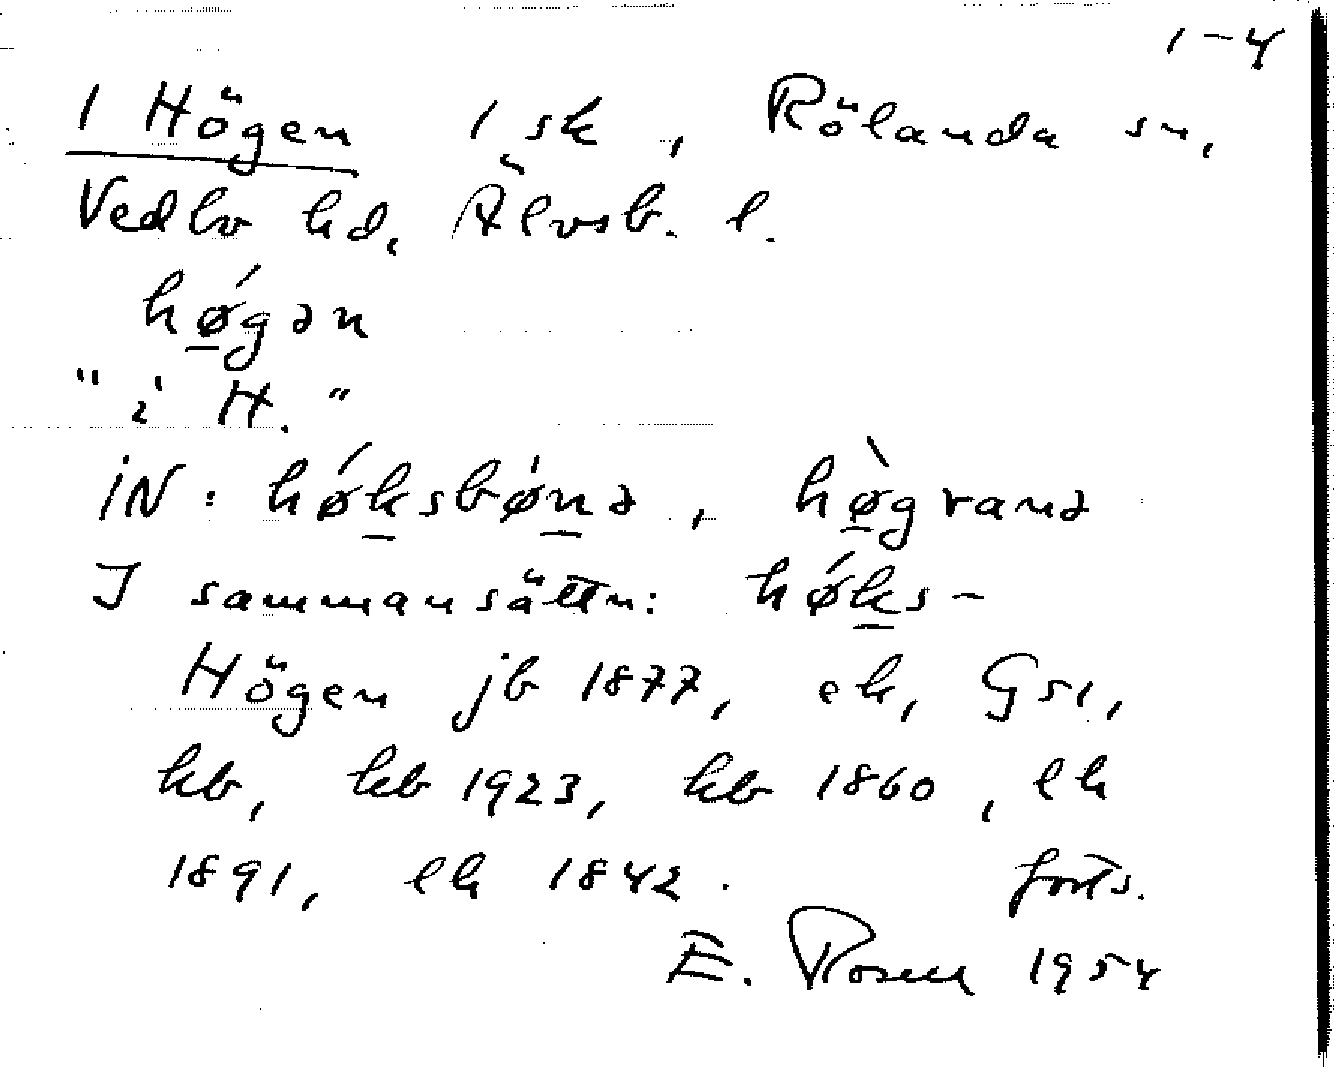 1-4
1 Högen 1 sk, Rölanda sn,
Vedbo hd, Älvsb. l.
hǿ̲gən
"i H."
iN: hǿk̲sbǿn̲ə, hø̲̀granə
I sammansättn: hǿk̲s-
Högen jb 1877, ek, Gs1,
kb, kb 1923, kb 1860, lh
1891, lh 1842. forts.
E. Rosell 1954